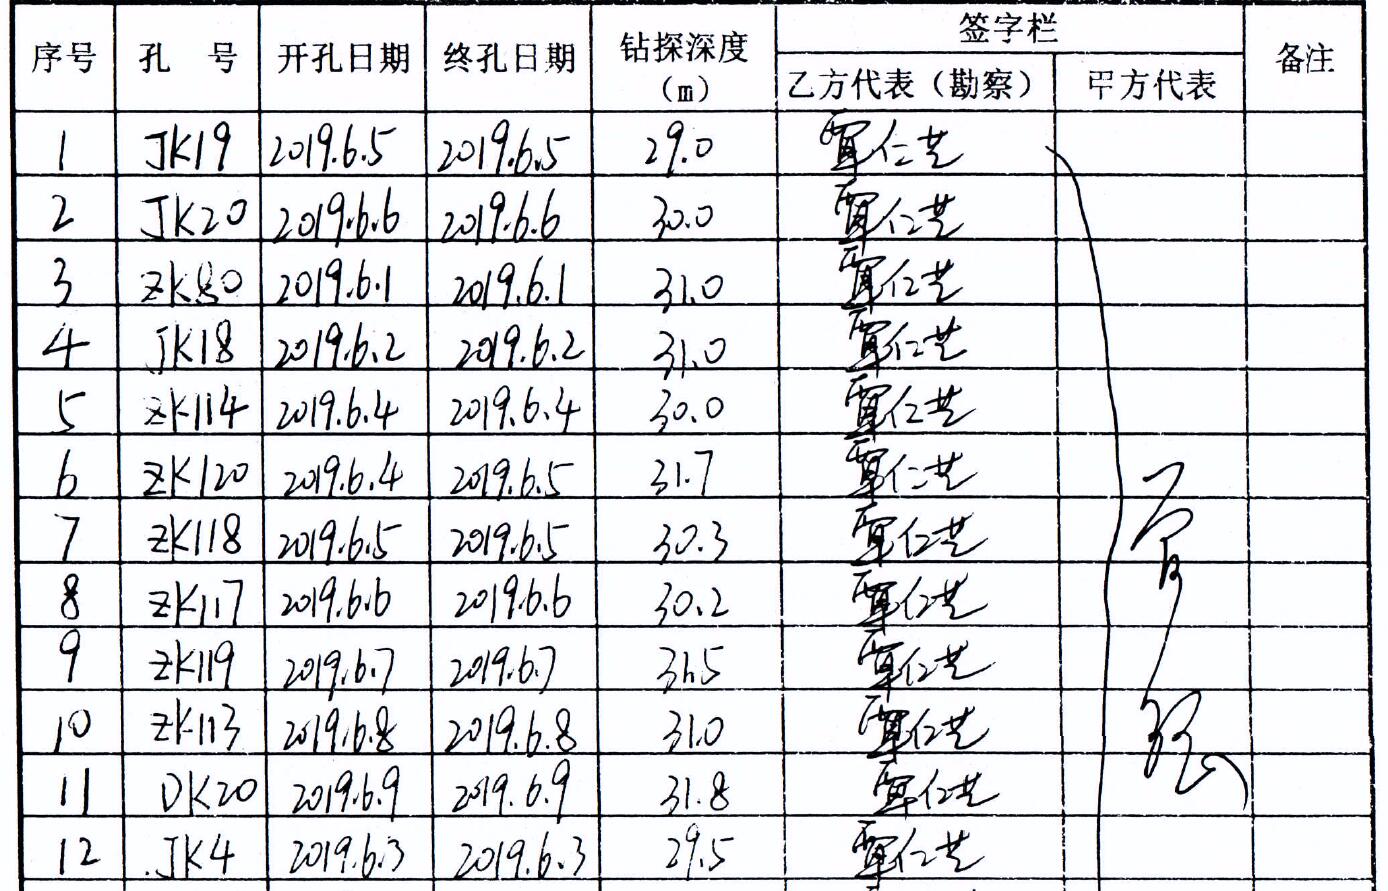 序号 孔 号 开孔日期 终孔日期 钻探深度(m) 签字栏 备注
乙方代表（勘察） 甲方代表
1 JK19 2019.6.5 2019.6.5 29.0 覃仁芝
2 JK20 2019.6.6 2019.6.6 30.0 覃仁芝
3 ZK80 2019.6.1 2019.6.1 31.0 覃仁芝
4 JK18 2019.6.2 2019.6.2 31.0 覃仁芝
5 ZK114 2019.6.4 2019.6.4 30.0 覃仁芝
6 ZK120 2019.6.4 2019.6.5 31.7 覃仁芝
7 ZK118 2019.6.5 2019.6.5 30.3 覃仁芝
8 ZK117 2019.6.6 2019.6.6 30.2 覃仁芝
9 ZK119 2019.6.7 2019.6.7 31.5 覃仁芝
10 ZK113 2019.6.8 2019.6.8 31.0 覃仁芝
11 DK20 2019.6.9 2019.6.9 31.8 覃仁芝
12 JK4 2019.6.3 2019.6.3 29.5 覃仁芝